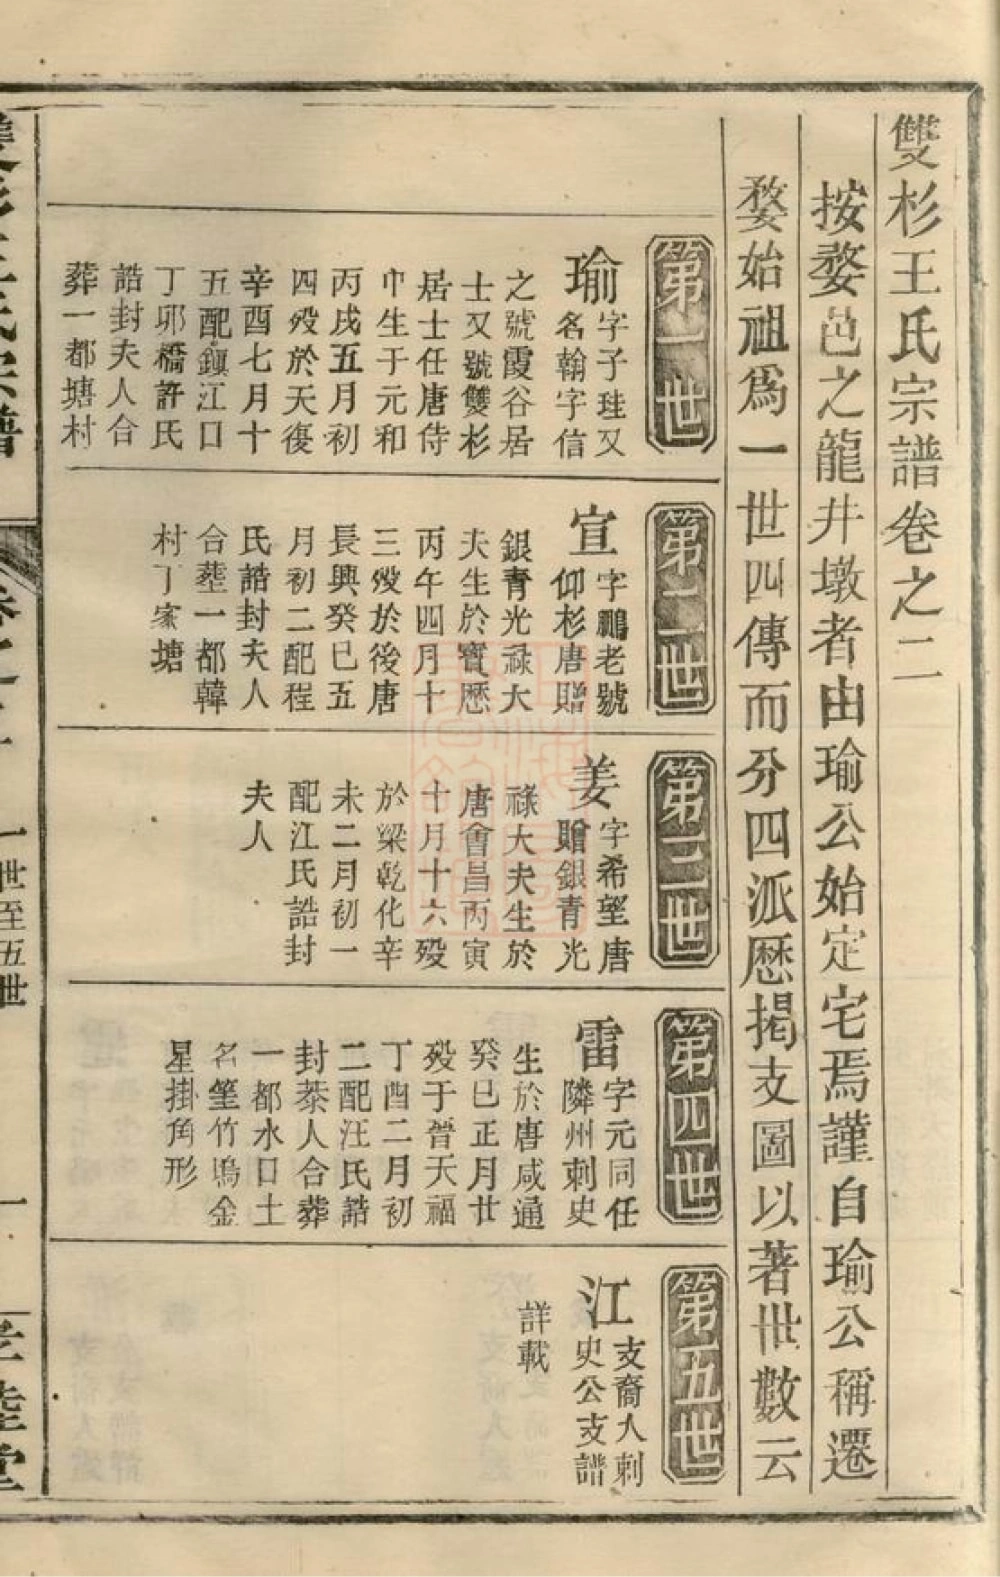 雙杉王氏宗譜卷之二
按婺邑之龍井墩者由瑜公始定宅焉謹自瑜公稱遷
婺始祖爲一世四傳而分四派歷揭支圖以著世數云
第一世
瑜
字子珪又
名翰字信
之號霞谷居
士又號雙杉
居士任唐侍
中生于元和
丙戌五月初
四歿於天復
辛酉七月十
五配鎮江口
丁卯橋許氏
誥封夫人合
葬一都塘村
第二世
宣
字鵬老號
仰杉唐贈
銀青光祿大
夫生於寶歷
丙午四月十
三歿於後唐
長興癸巳五
月初二配程
氏誥封夫人
合葬一都韓
村丁家塘
第三世
姜
字希望唐
贈銀青光
祿大夫生於
唐會昌丙寅
十月十六歿
於梁乾化辛
未二月初一
配江氏誥封
夫人
第四世
雷
字元同任
隣州刺史
生於唐咸通
癸巳正月廿
歿于晉天福
丁酉二月初
二配汪氏誥
封恭人合葬
一都水口土
名篁竹塢金
星掛角形
第五世
江
支裔入刺
史公支譜
詳載
雙杉王氏宗譜
卷之二
一世至五世
一
孝睦堂